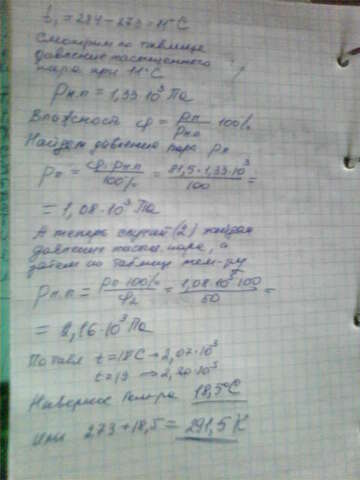 t₁ = 284 - 273 = 11°C
Смотрим по таблице
давление насыщенного
пара при 11°C
Pн.п = 1,33·10³ Па
Влажность φ = Pп/Pн.п · 100%
Найдем давление пара Pп
Pп = φ·Pн.п/100% = 81,5·1,33·10³/100 =
= 1,08·10³ Па
А теперь случай (2) найдем
давление насыщ. пара, а
затем по таблице тем-ру
Pн.п = Pп·100%/φ₂ = 1,08·10³·100/50 =
= 2,16·10³ Па
По табл t=18C → 2,07·10³
t=19 → 2,20·10³
18,5°C
Или 273 + 18,5 = 291,5 K